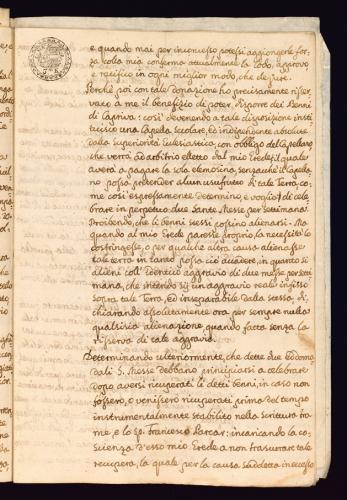 e quando mai per inconcusso potessi aggiongerle for-
za colla mia conferma attualmente la lodo, approvo
e ratifico in ogni miglior modo, che de jure.
Perchè poi con tale Donazione ho precisamente riser-
vato a me il benefizio di poter disporre dei Benni
di Capriva: così devenendo a tale disposizione insti-
tuisco una Capella Scolare, ed independente absolute
dalla Superiorità Eclesiastica, con obbligo del Capellano,
che verrà ad arbitrio elletto dal mio Erede, il quale
averà a pagare la sola elemosina, senza che il Capella-
no possa pretender alcun usufrutto di tale Terra, co-
me così espressamente Determino, e voglio di cele-
brare in perpetuo due Sante Messe per settimana:
Proibendo, che li benni stessi possino alienarsi. Ma
quando al mio Erede paresse proprio, la necessità lo
costringesse, o per qualche altra causa alienasse
tale terra in tanto possa ciò accadere, in quanto se
alieni coll' identico aggravio di due messe per setti-
mana, che intendo sij un aggravio reale infisso
sopra tale Terra, ed inseparabile dalla stessa, di-
chiarando assolutamente ora per sempre nulla
qualsivia alienazione quando fatta senza la
riserva di tale aggravio.
Determinando ulteriormente, che dette due Eddoma-
dali S. Messe debbano principiarsi a celebrare
dopo aversi ricuperati li detti benni, in caso non
fossero, e venissero ricuperati prima del tempo
instrumentalmente stabilito nella Scrittura fra
me, e lo Sp. Francesco Barcar: incaricando la co-
scienza d'esso mio Erede a non trasurare tale
recupera, la quale per la causa suddetta in cesso